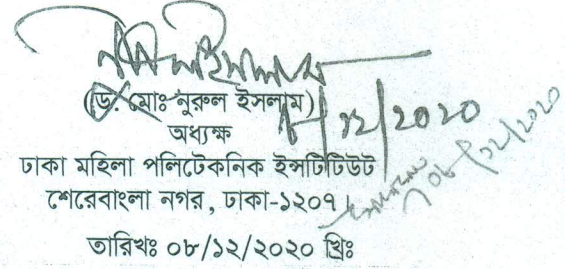 (ড. মোঃ নুরুল ইসলাম)
৮/১২/2020
অধ্যক্ষ
ঢাকা মহিলা পলিটেকনিক ইন্সটিটিউট
শেরেবাংলা নগর, ঢাকা-১২০৭।
০৮/১২/২০২০
তারিখঃ ০৮/১২/২০২০ খ্রিঃ